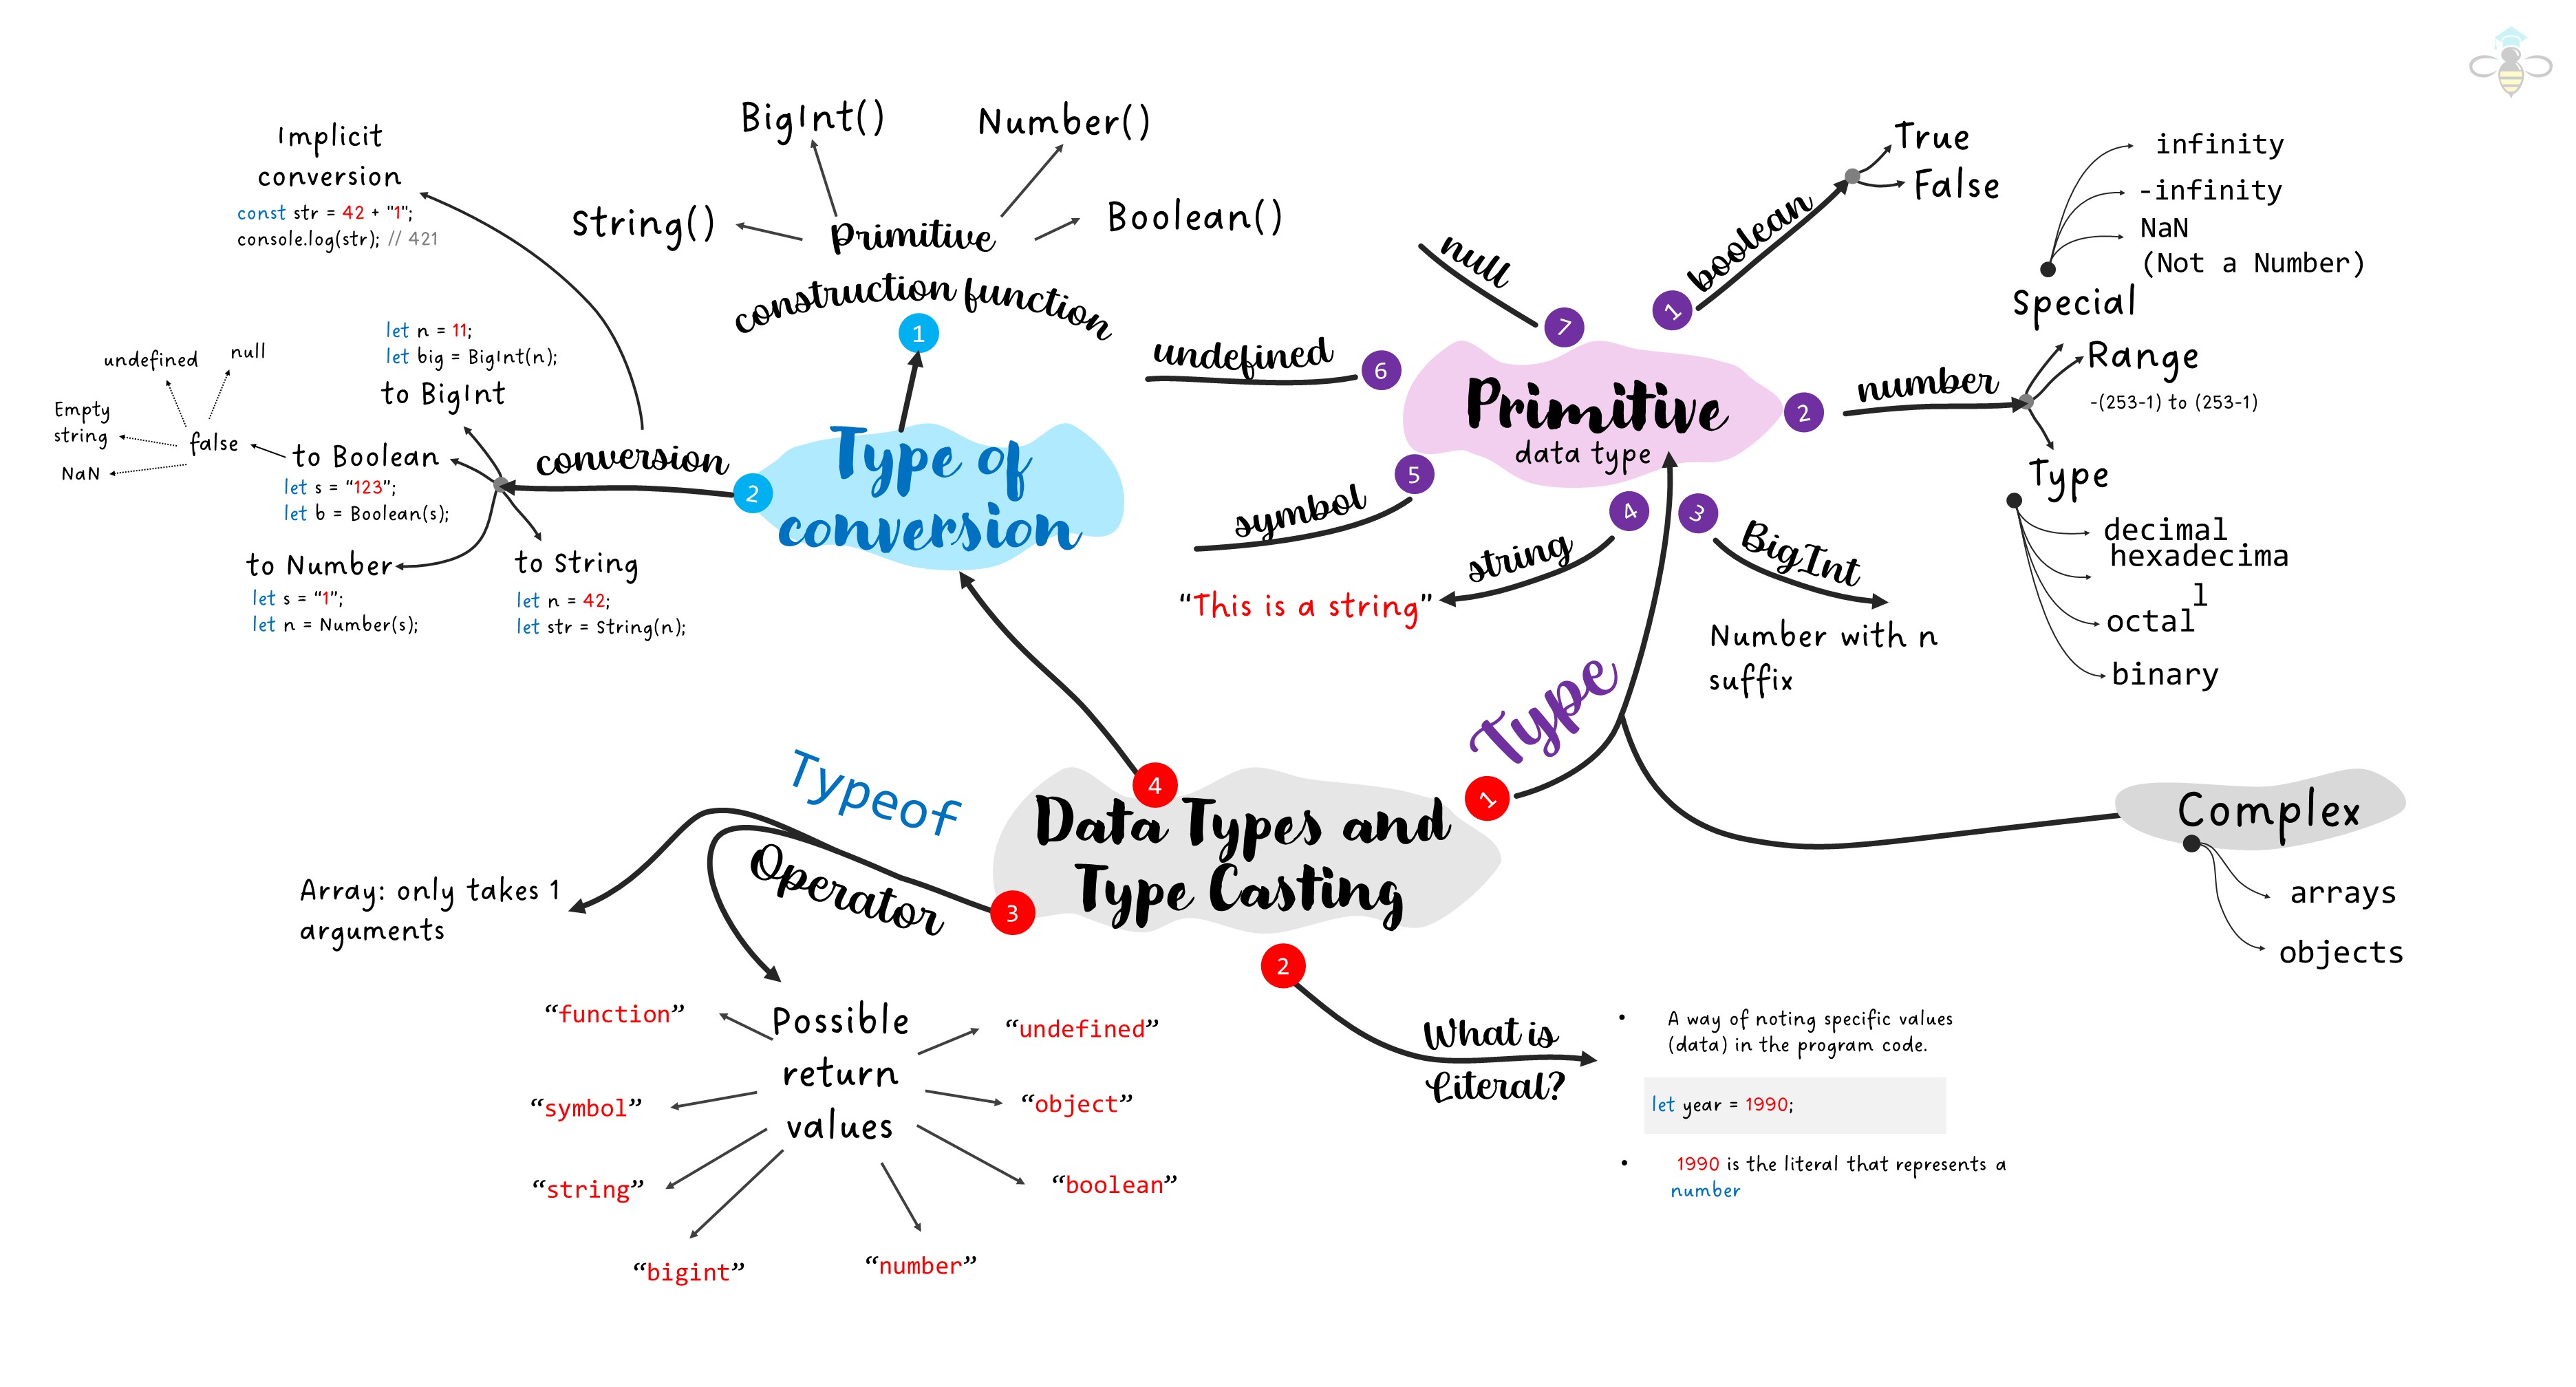 Data Types and
Type Casting
1
Type
Primitive
data type
1
boolean
True
False
2
number
Special
infinity
-infinity
NaN
(Not a Number)
Range
-(253-1) to (253-1)
Type
decimal
hexadecima
l
octal
binary
3
BigInt
Number with n
suffix
4
string
“This is a string”
5
symbol
6
undefined
7
null
Complex
arrays
objects
2
What is
Literal?
• A way of noting specific values
(data) in the program code.
let year = 1990;
• 1990 is the literal that represents a
number
3
Typeof
Operator
Array: only takes 1
arguments
Possible
return
values
“function”
“undefined”
“symbol”
“object”
“string”
“boolean”
“bigint”
“number”
4
Type of
conversion
1
Primitive
construction function
String()
BigInt()
Number()
Boolean()
2
conversion
Implicit
conversion
const str = 42 + "1";
console.log(str); // 421
let n = 11;
let big = BigInt(n);
to BigInt
to Boolean
let s = “123”;
let b = Boolean(s);
false
undefined
null
Empty
string
NaN
to Number
let s = “1”;
let n = Number(s);
to String
let n = 42;
let str = String(n);